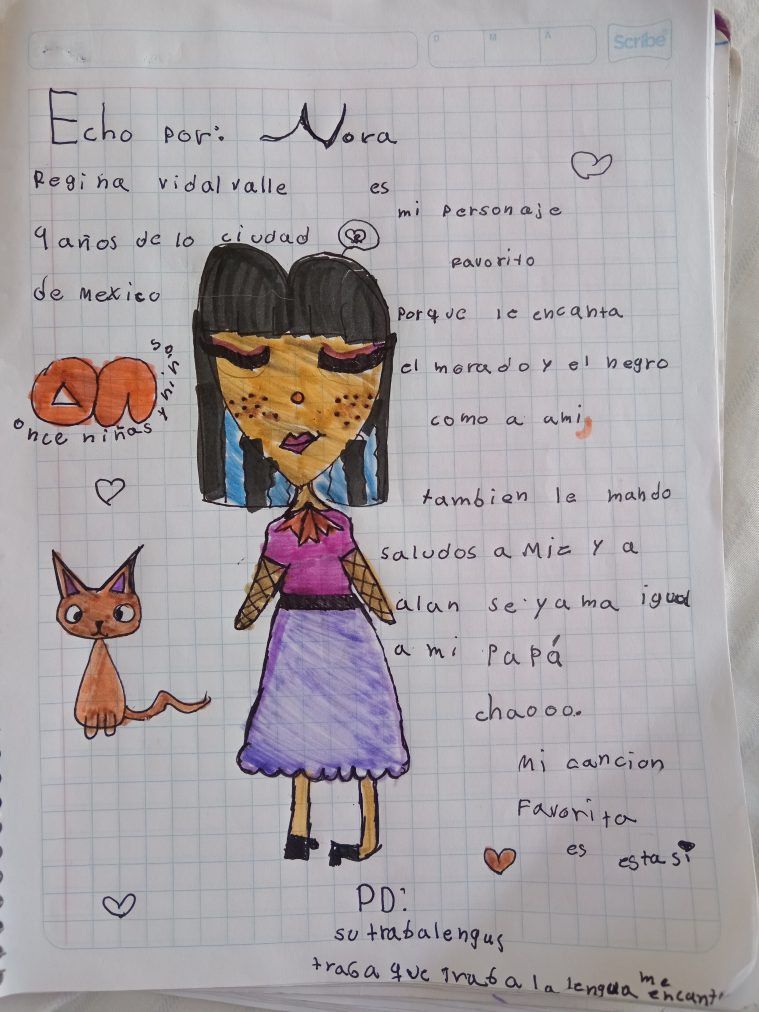 D M A
Scribe
Echo por: Nora
Regina vidal valle
9 años de lo ciudad
de mexico
es
mi personaje
favorito
porque le encanta
el morado y el negro
como a ami,
tambien le mando
saludos a Miz y a
alan se yama igual
a mi papá
chaooo.
Mi cancion
Favorita
es esta si
once niñas y niños
PD:
su trabalengus
traba que traba la lengua me
encant